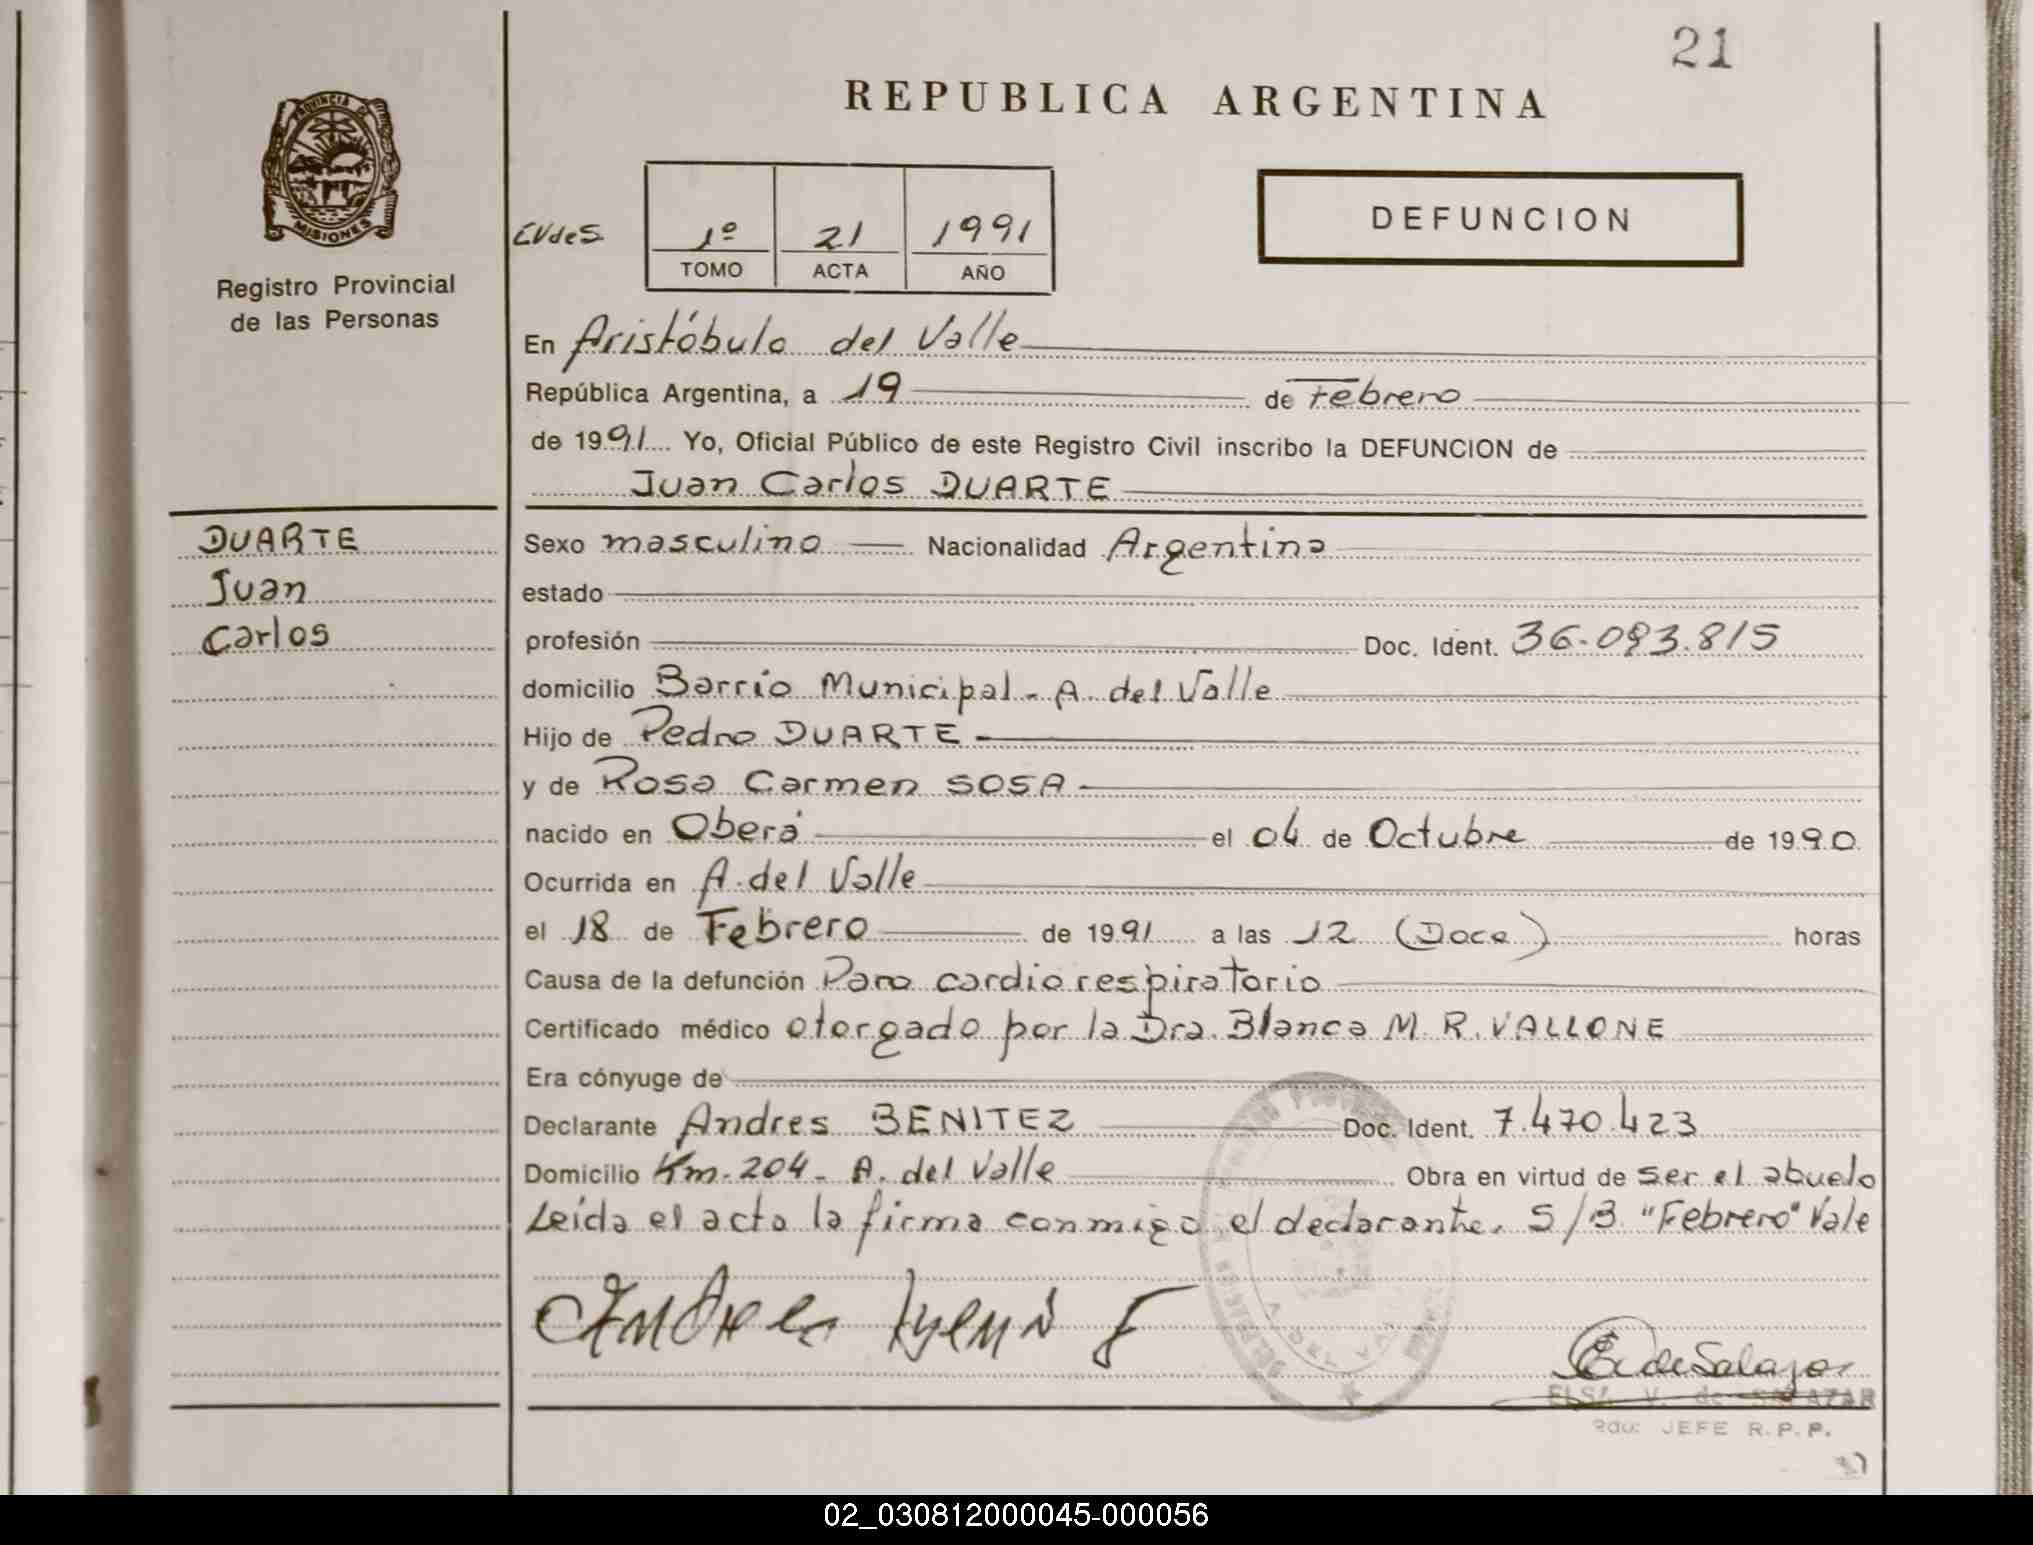 21
REPUBLICA ARGENTINA
PROVINCIA DE
MISIONES
Registro Provincial
de las Personas
DEFUNCION
EVdeS
1º 21 1991
TOMO ACTA AÑO
En Aristóbulo del Valle
República Argentina, a 19 de Febrero
de 1991 Yo, Oficial Público de este Registro Civil inscribo la DEFUNCION de
Juan Carlos DUARTE
DUARTE
Juan
Carlos
Sexo masculino Nacionalidad Argentina
estado
profesión Doc. Ident. 36.093.815
domicilio Barrio Municipal - A. del Valle
Hijo de Pedro DUARTE
y de Rosa Carmen SOSA
nacido en Oberá el 04 de Octubre de 1990
Ocurrida en A. del Valle
el 18 de Febrero de 1991 a las 12 (Doce) horas
Causa de la defunción Paro cardiorespiratorio
Certificado médico otorgado por la Dra. Blanca M. R. VALLONE
Era cónyuge de
Declarante Andres BENITEZ Doc. Ident. 7.470.423
Domicilio Km. 204 - A. del Valle Obra en virtud de ser el abuelo
Leída el acta la firma conmigo el declarante. S/B "Febrero" Vale
E. de Salazar
ELSA V. de SALAZAR
JEFE R. P. P.
02_030812000045-000056